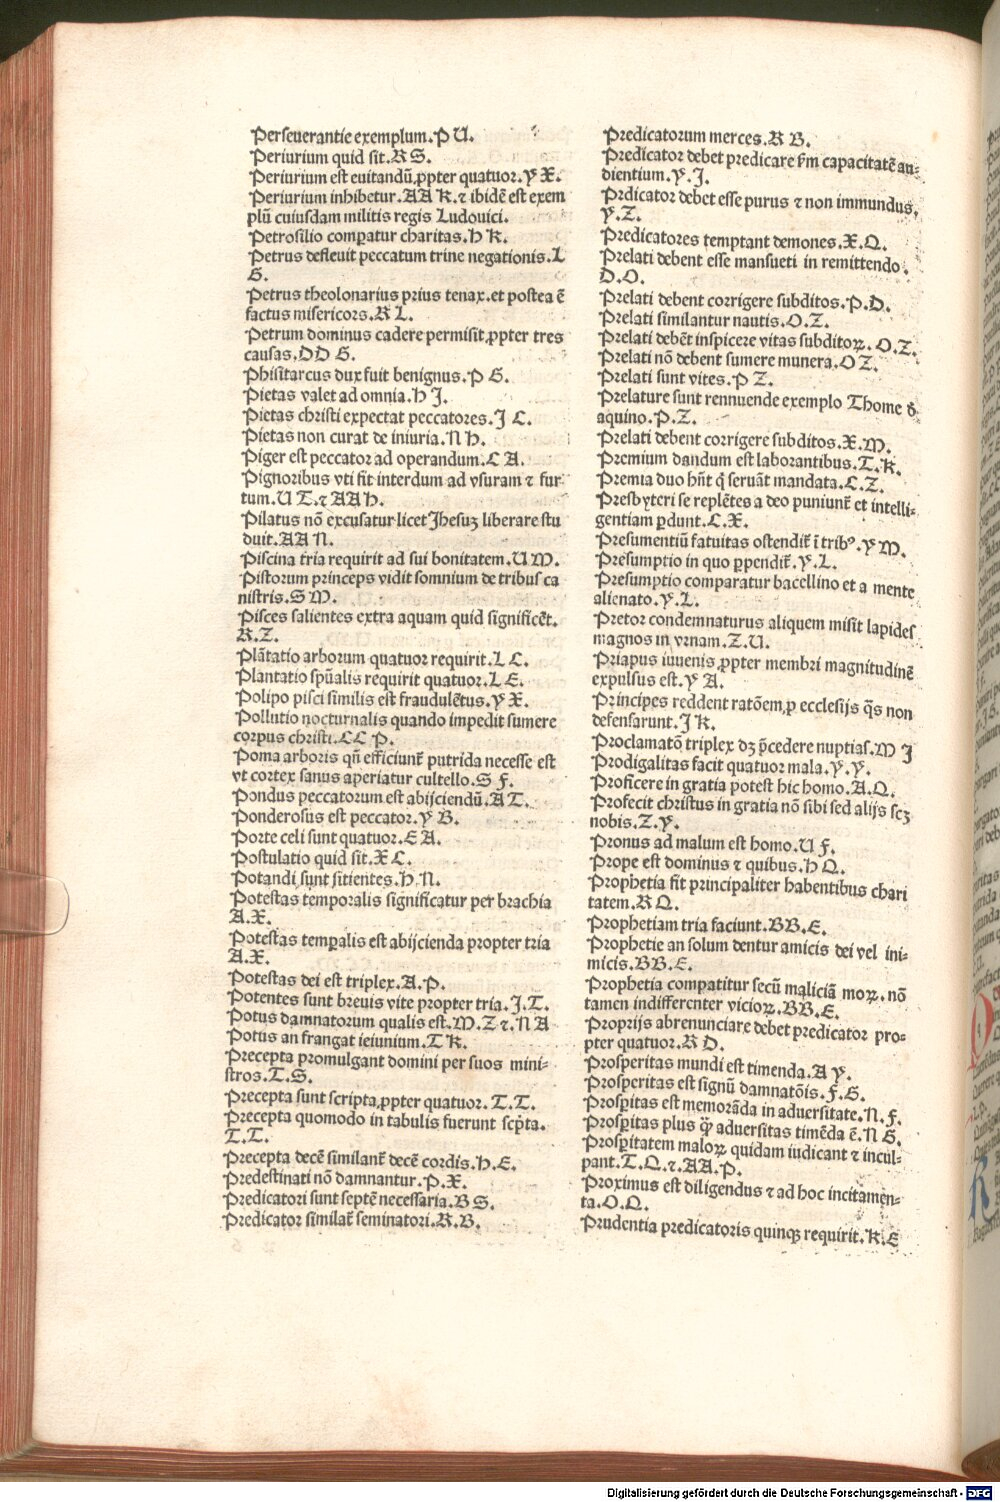 Perseuerantie exemplum.P U.
Periurium quid sit.R S.
Periurium est euitandū ꝓpter quatuor.Y X.
Periurium inhibetur.AA K.⁊ ibidē est exem
plū cuiusdam militis regis Ludouici.
Petrosilio comꝑatur charitas.H K.
Petrus defleuit peccatum trine negationis.L
G.
Petrus theolonarius prius tenax.et postea ē
factus misericors.R L.
Petrum dominus cadere permisit ꝓpter tres
causas.DD G.
Phisitarcus dux fuit benignus.P G.
Pietas valet ad omnia.H J.
Pietas christi expectat peccatores.J C.
Pietas non curat de iniuria.N H.
Piger est peccator ad operandum.C A.
Pignoribus vti fit interdum ad vsuram ⁊ fur
tum.U T.⁊ AA H.
Pilatus nō excusatur licet Jhesuʒ liberare stu
duit.AA N.
Piscina tria requirit ad sui bonitatem.U M.
Pistorum princeps vidit somnium de tribus ca
nistris.S M.
Pisces salientes extra aquam quid significēt.
R.Z.
Plātatio arborum quatuor requirit.L C.
Plantatio spūalis requirit quatuor.L E.
Polipo pisci similis est fraudulētus.Y X.
Pollutio nocturnalis quando impedit sumere
corpus christi.CC P.
Poma arboris qn̄ efficiunt̄ putrida necesse est
vt cortex sanus aperiatur cultello.S F.
Pondus peccatorum est abijciendū.A T.
Ponderosus est peccator.Y B.
Porte celi sunt quatuor.E A.
Postulatio quid sit.X C.
Potandi sunt sitientes.H.N.
Potestas temporalis significatur per brachia
A.X.
Potestas temꝑalis est abijcienda propter tria
A.X.
Potestas dei est triplex.A.P.
Potentes sunt breuis vite propter tria.J.T.
Potus damnatorum qualis est.M.Z ⁊.N A
Potus an frangat ieiunium.T K.
Precepta promulgant domini per suos mini⸗
stros.T.S.
Precepta sunt scripta ꝓpter quatuor.T.T.
Precepta quomodo in tabulis fuerunt scꝑta.
T.T.
Precepta decē similant̄ decē cordis.H.E.
Predestinati nō damnantur.P.X.
Predicatori sunt septē necessaria.B S.
Predicator similat̄ seminatori.R.B.
Predicatorum merces.R B.
Predicator debet predicare ẜm capacitatē au⸗
dientium.Y.J.
Prdicator debet esse purus ⁊ non immundus.
Y.Z.
Predicatores temptant demones.X.Q.
Prelati debent esse mansueti in remittendo.
D.O.
Prelati debent corrigere subditos.P.D.
Prelati similantur nautis.O.Z.
Prelati debēt inspicere vitas subditoꝝ.O.Z.
Prelati nō debent sumere munera.O Z.
Prelati sunt vites.P Z.
Prelature sunt rennuende exemplo Thome ð
aquino.P.Z.
Prelati debent corrigere subditos.X.M.
Premium dandum est laborantibus.T.K.
Premia duo hn̄t q̄ seruāt mandata.C.Z.
Presbyteri se replētes a deo puniunt̄ et intelli⸗
gentiam ꝑdunt.C.X.
Presumentiū fatuitas ostendit̄ ī trib⁹.Y M.
Presumptio in quo ꝑpendit̄.Y.L.
Presumptio comparatur bacellino et a mente
alienato.Y.L.
Pretor condemnaturus aliquem misit lapides
magnos in vrnam.Z.U.
Priapus iuuenis ꝓpter membri magnitudinē
expulsus est.Y A.
Principes reddent ratōem ꝓ ecclesijs q̄s non
defensarunt.J K.
Proclamatō triplex dʒ p̄cedere nuptias.M J
Prodigalitas facit quatuor mala.Y.Y.
Proficere in gratia potest hic homo.A.Q.
Profecit christus in gratia nō sibi sed alijs scʒ
nobis.Z.Y.
Pronus ad malum est homo.U F.
Prope est dominus ⁊ quibus.H Q.
Prophetia fit principaliter habentibus chari
tatem.R Q.
Prophetiam tria faciunt.BB.E.
Prophetie an solum dentur amicis dei vel ini⸗
micis.BB.E.
Prophetia compatitur secū maliciā moꝝ.nō
tamen indifferenter vicioꝝ.BB.E.
Proprijs abrenunciare debet predicator pro⸗
pter quatuor.R D.
Prosperitas mundi est timenda.A Y.
Prosperitas est signū damnatōis.F.G.
Prosꝑitas est memorāda in aduersitate.N.F.
Prosꝑitas plus q̄ꝫ aduersitas timēda ē.N G.
Prosꝑitatem maloꝝ quidam iudicant ⁊ incul⸗
pant.T.Q.⁊.AA.P.
Proximus est diligendus ⁊ ad hoc incitamen⸗
ta.O.Q.
Prudentia predicatoris quinqꝫ requirit.K.E
Digitalisierung gefördert durch die Deutsche Forschungsgemeinschaft - DFG